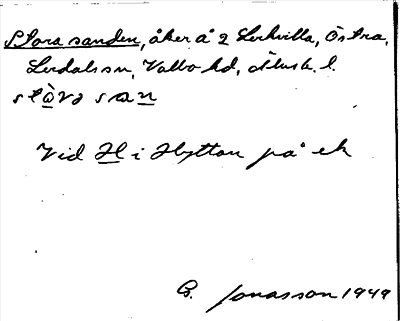 Stora sanden, åker å 2 Lerkvilla, Östra,
Lerdals sn, Valbo hd, Älvsb. l.
stòrə san
Vid H i Hytton på ek
G. Jonasson 1949